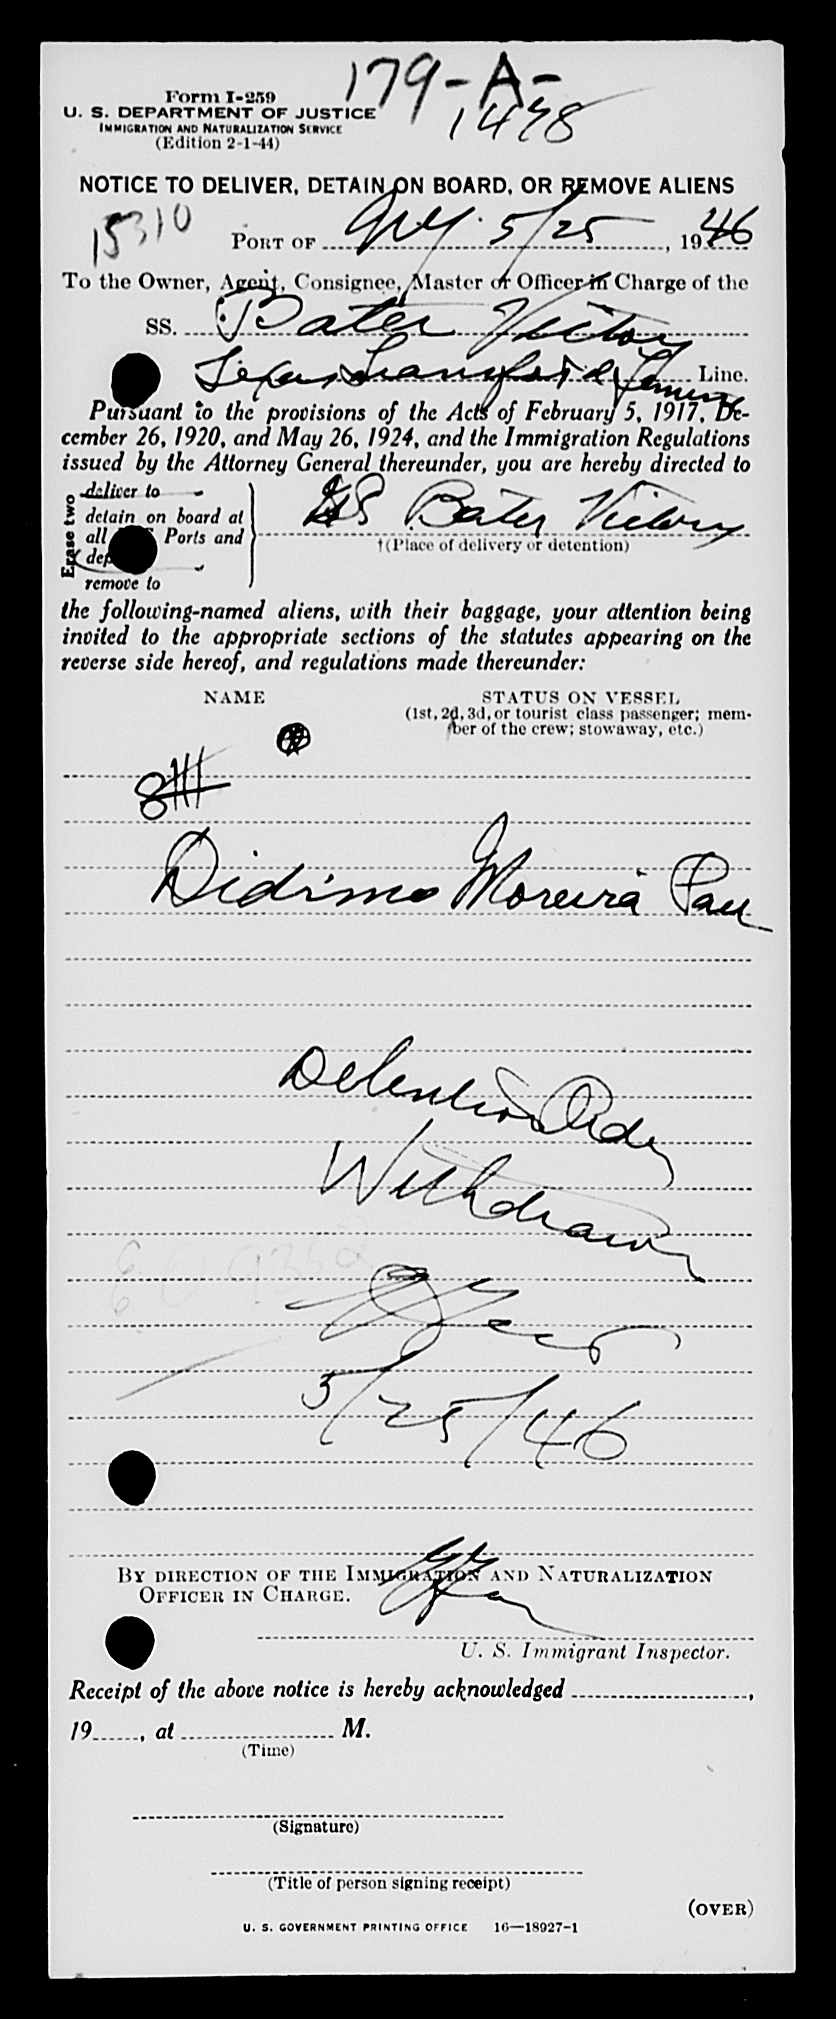 179-A-
1478
Form I-259
U. S. DEPARTMENT OF JUSTICE
IMMIGRATION AND NATURALIZATION SERVICE
(Edition 2-1-44)
NOTICE TO DELIVER, DETAIN ON BOARD, OR REMOVE ALIENS
15310
PORT OF N.Y. 5/25, 1946
To the Owner, Agent, Consignee, Master or Officer in Charge of the
SS. Bater Victory
Texas Transport & Line.
Pursuant to the provisions of the Acts of February 5, 1917, De-
cember 26, 1920, and May 26, 1924, and the Immigration Regulations
issued by the Attorney General thereunder, you are hereby directed to
Erase two
deliver to
detain on board at
all Ports and
remove to
SS Bater Victory
†(Place of delivery or detention)
the following-named aliens, with their baggage, your attention being
invited to the appropriate sections of the statutes appearing on the
reverse side hereof, and regulations made thereunder:
NAME STATUS ON VESSEL
(1st, 2d, 3d, or tourist class passenger; mem-
ber of the crew; stowaway, etc.)
Didimo Moreira Pau
Detention Order
Withdrawn
5/25/46
BY DIRECTION OF THE IMMIGRATION AND NATURALIZATION
OFFICER IN CHARGE.
U. S. Immigrant Inspector.
Receipt of the above notice is hereby acknowledged ,
19 , at M.
(Time)
(Signature)
(Title of person signing receipt)
(OVER)
U. S. GOVERNMENT PRINTING OFFICE 16—18927-1